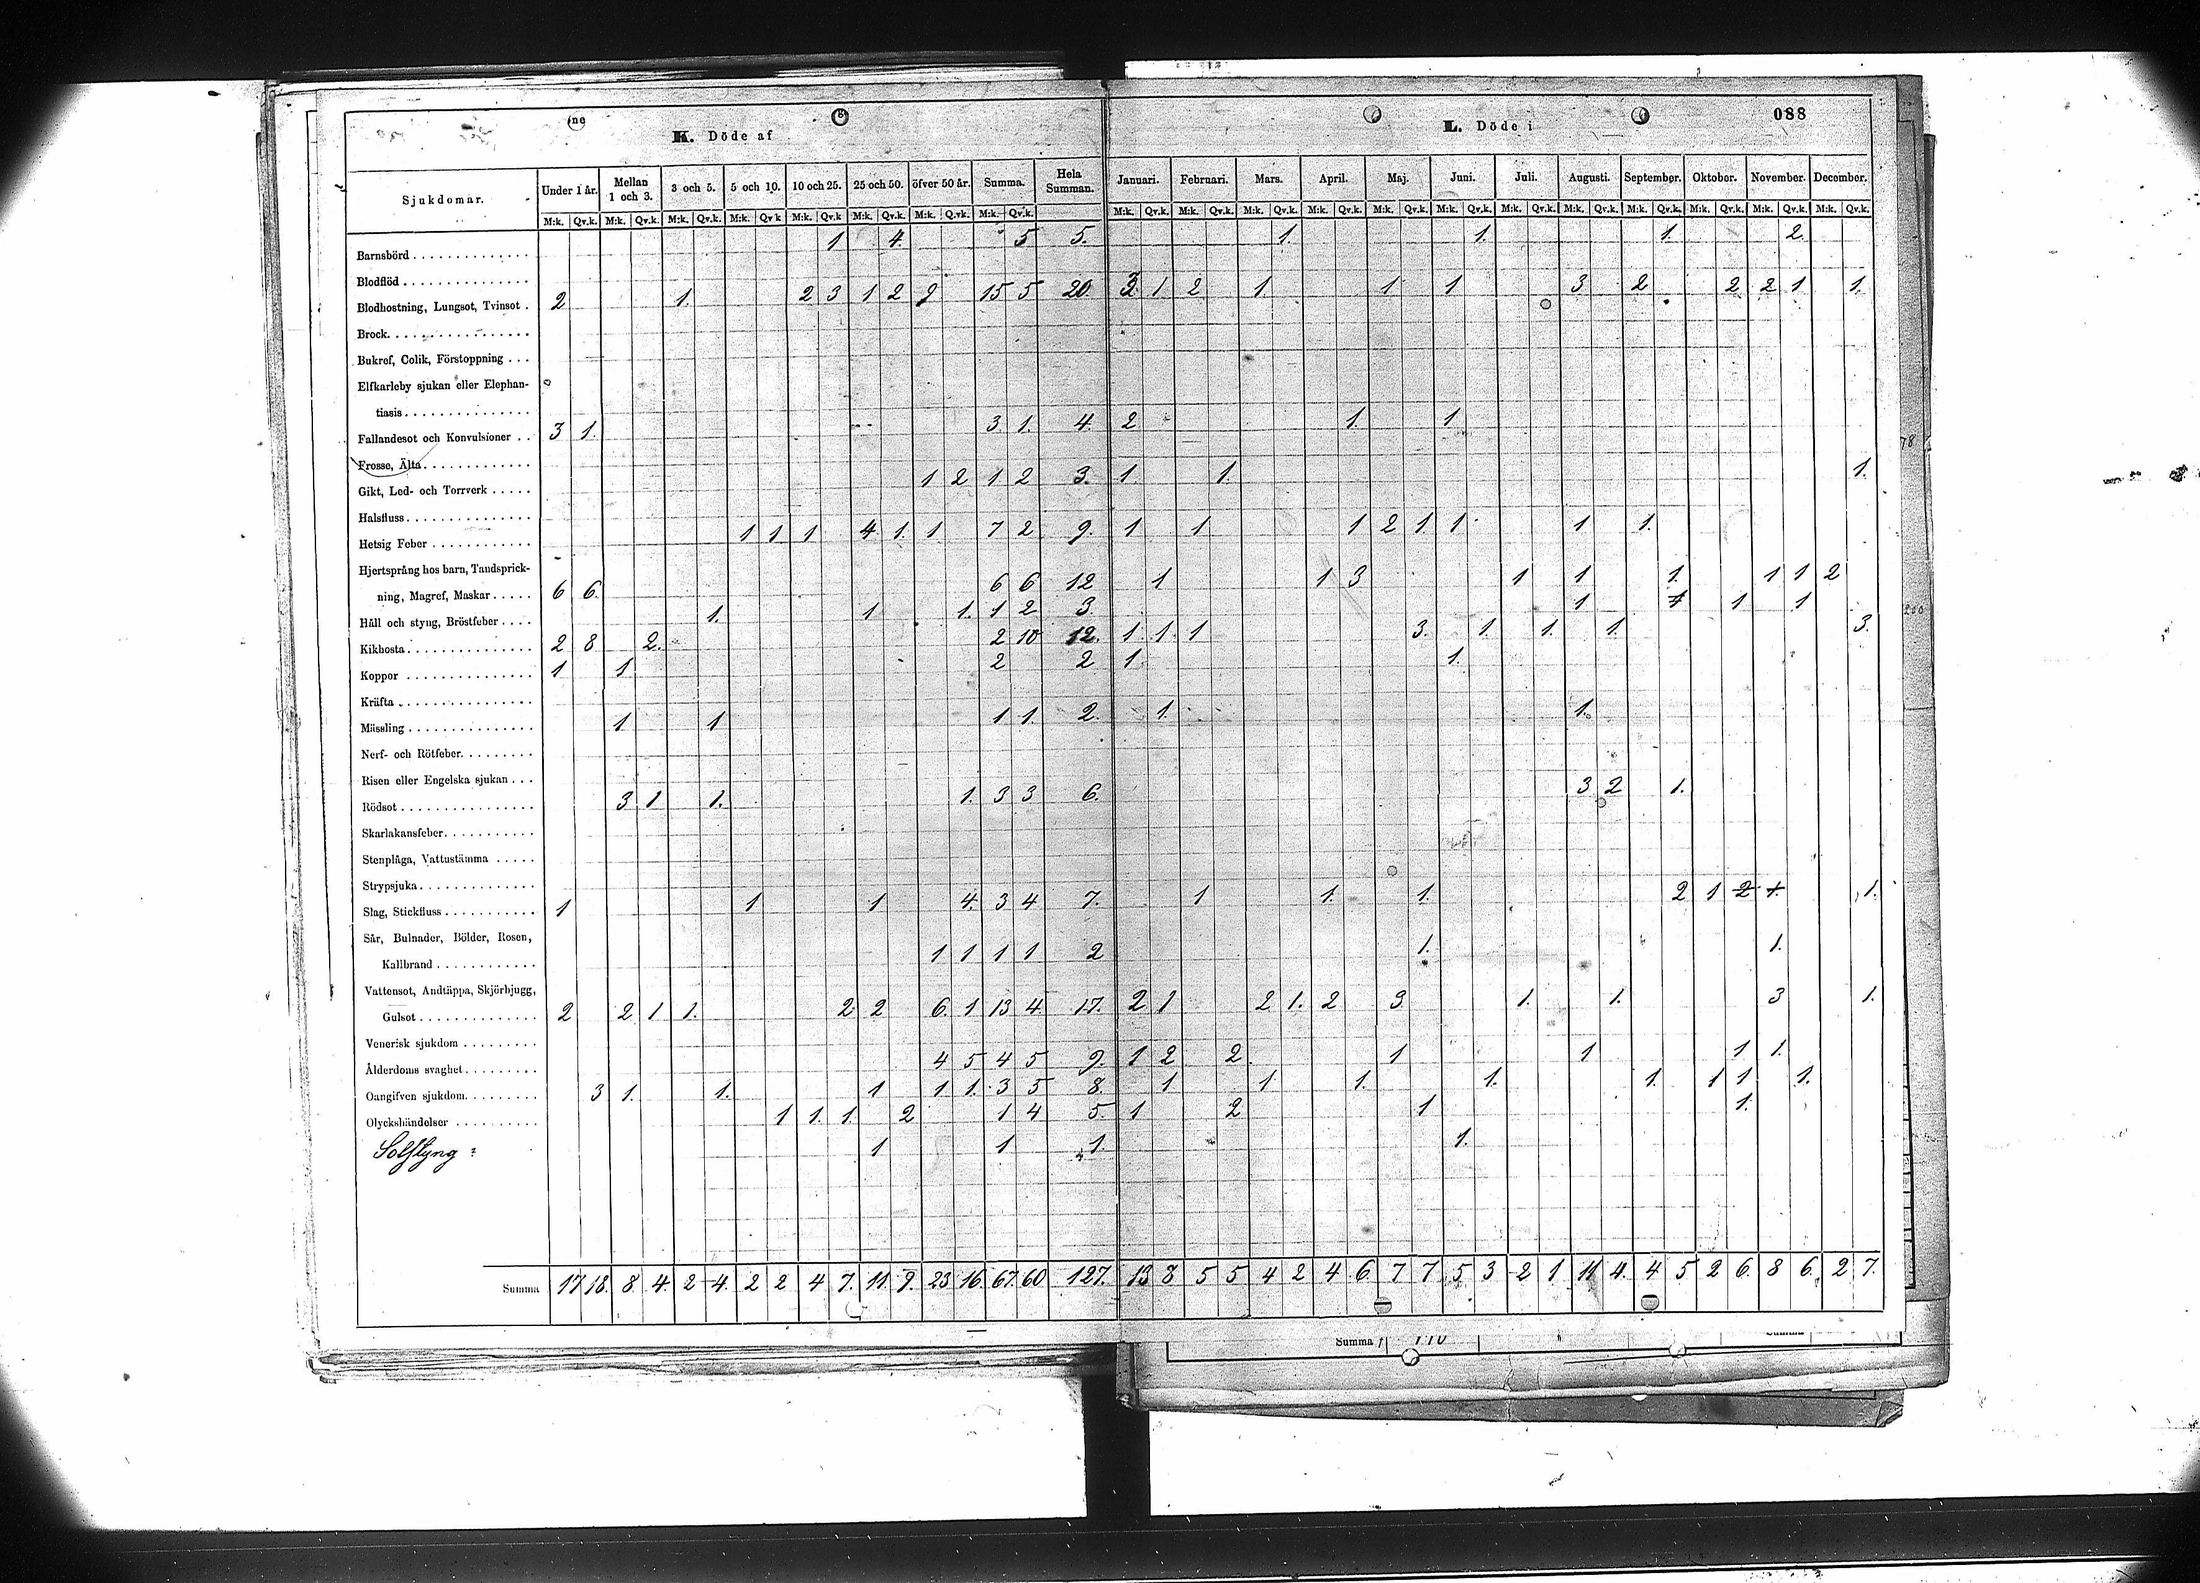 088
K. Döde af L. Döde i
Sjukdomar. Under 1 år. Mellan 1 och 3. 3 och 5. 5 och 10. 10 och 25. 25 och 50. öfver 50 år. Summa. Hela Summan. Januari. Februari. Mars. April. Maj. Juni. Juli. Augusti. September. Oktober. November. December.
M:k. Qv.k. M:k. Qv.k. M:k. Qv.k. M:k. Qv.k M:k. Qv.k M:k. Qv.k. M:k. Qv.k. M:k. Qv.k. M:k. Qv.k. M:k. Qv.k. M:k. Qv.k. M:k. Qv.k. M:k. Qv.k. M:k. Qv.k. M:k. Qv.k. M:k. Qv.k. M:k. Qv.k. M:k. Qv.k. M:k. Qv.k. M:k. Qv.k.
Barnsbörd 1 4. 5 5. 1. 1. 1. 2.
Blodflöd
Blodhostning, Lungsot, Tvinsot . 2 1. 2 3 1 2 9 15 5 20. 3 1 2 1. 1 1 3 2 2 2 1 1.
Brock
Bukref, Colik, Förstoppning . . .
Elfkarleby sjukan eller Elephan-
tiasis
Fallandesot och Konvulsioner . . 3 1. 3 1. 4. 2 1. 1
Frosse, Älta
Gikt, Led- och Torrverk 1 2 1 2 3. 1. 1. 1.
Halsfluss
Hetsig Feber 1 1 1 4 1. 1 7 2 9. 1 1. 1 2 1 1 1 1.
Hjertsprång hos barn, Tandsprick-
ning, Magref, Maskar 6 6. 6 6 12 1 1 3 1 1 1. 1 1 2
Håll och styng, Bröstfeber 1. 1 1. 1 2 3. 1 1 1 1
Kikhosta 2 8 2. 2 10 12. 1 1. 1 3. 1. 1. 1. 3.
Koppor 1 1 2 2 1. 1.
Kräfta
Mässling 1 1 1 1. 2. 1. 1.
Nerf- och Rötfeber
Risen eller Engelska sjukan . . .
Rödsot 3 1 1. 1. 3 3 6. 3 2 1.
Skarlakansfeber
Stenplåga, Vattustämma
Strypsjuka
Slag, Stickfluss 1 1 1 4. 3 4 7. 1 1. 1. 2 1 2 1. 1.
Sår, Bulnader, Bölder, Rosen,
Kallbrand 1 1 1 1 2 1. 1.
Vattensot, Andtäppa, Skjörbjugg,
Gulsot 2 2 1 1. 2 2 6. 1 13 4 17. 2 1 2 1. 2 3 1. 1. 3 1.
Venerisk sjukdom
Ålderdoms svaghet 4 5 4 5 9. 1 2 2. 1 1 1 1.
Oangifven sjukdom 3 1. 1. 1 1 1. 3 5 8. 1 1. 1. 1. 1. 1 1 1.
Olyckshändelser 1 1. 1. 2 1 4 5. 1 2 1 1.
Solstyng 1 1 1. 1.
Summa 17 18. 8 4. 2 4. 2 2 4 7. 11 9. 23 16. 67. 60 127. 13 8 5 5 4 2 4 6. 7 7 5 3 2 1 11 4. 4 5 2 6. 8 6. 2 7.
Summa